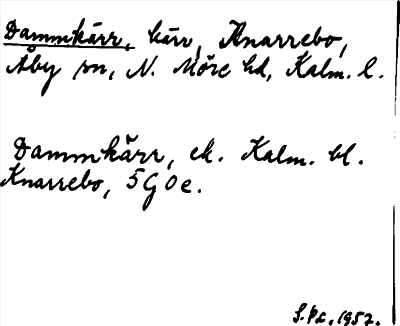 Dammkärr, kärr, Knarrebo,
Åby sn, N. Möre hd, Kalm. l.
Dammkärr, ek. Kalm. bl.
Knarrebo, 5G0e.
1957.